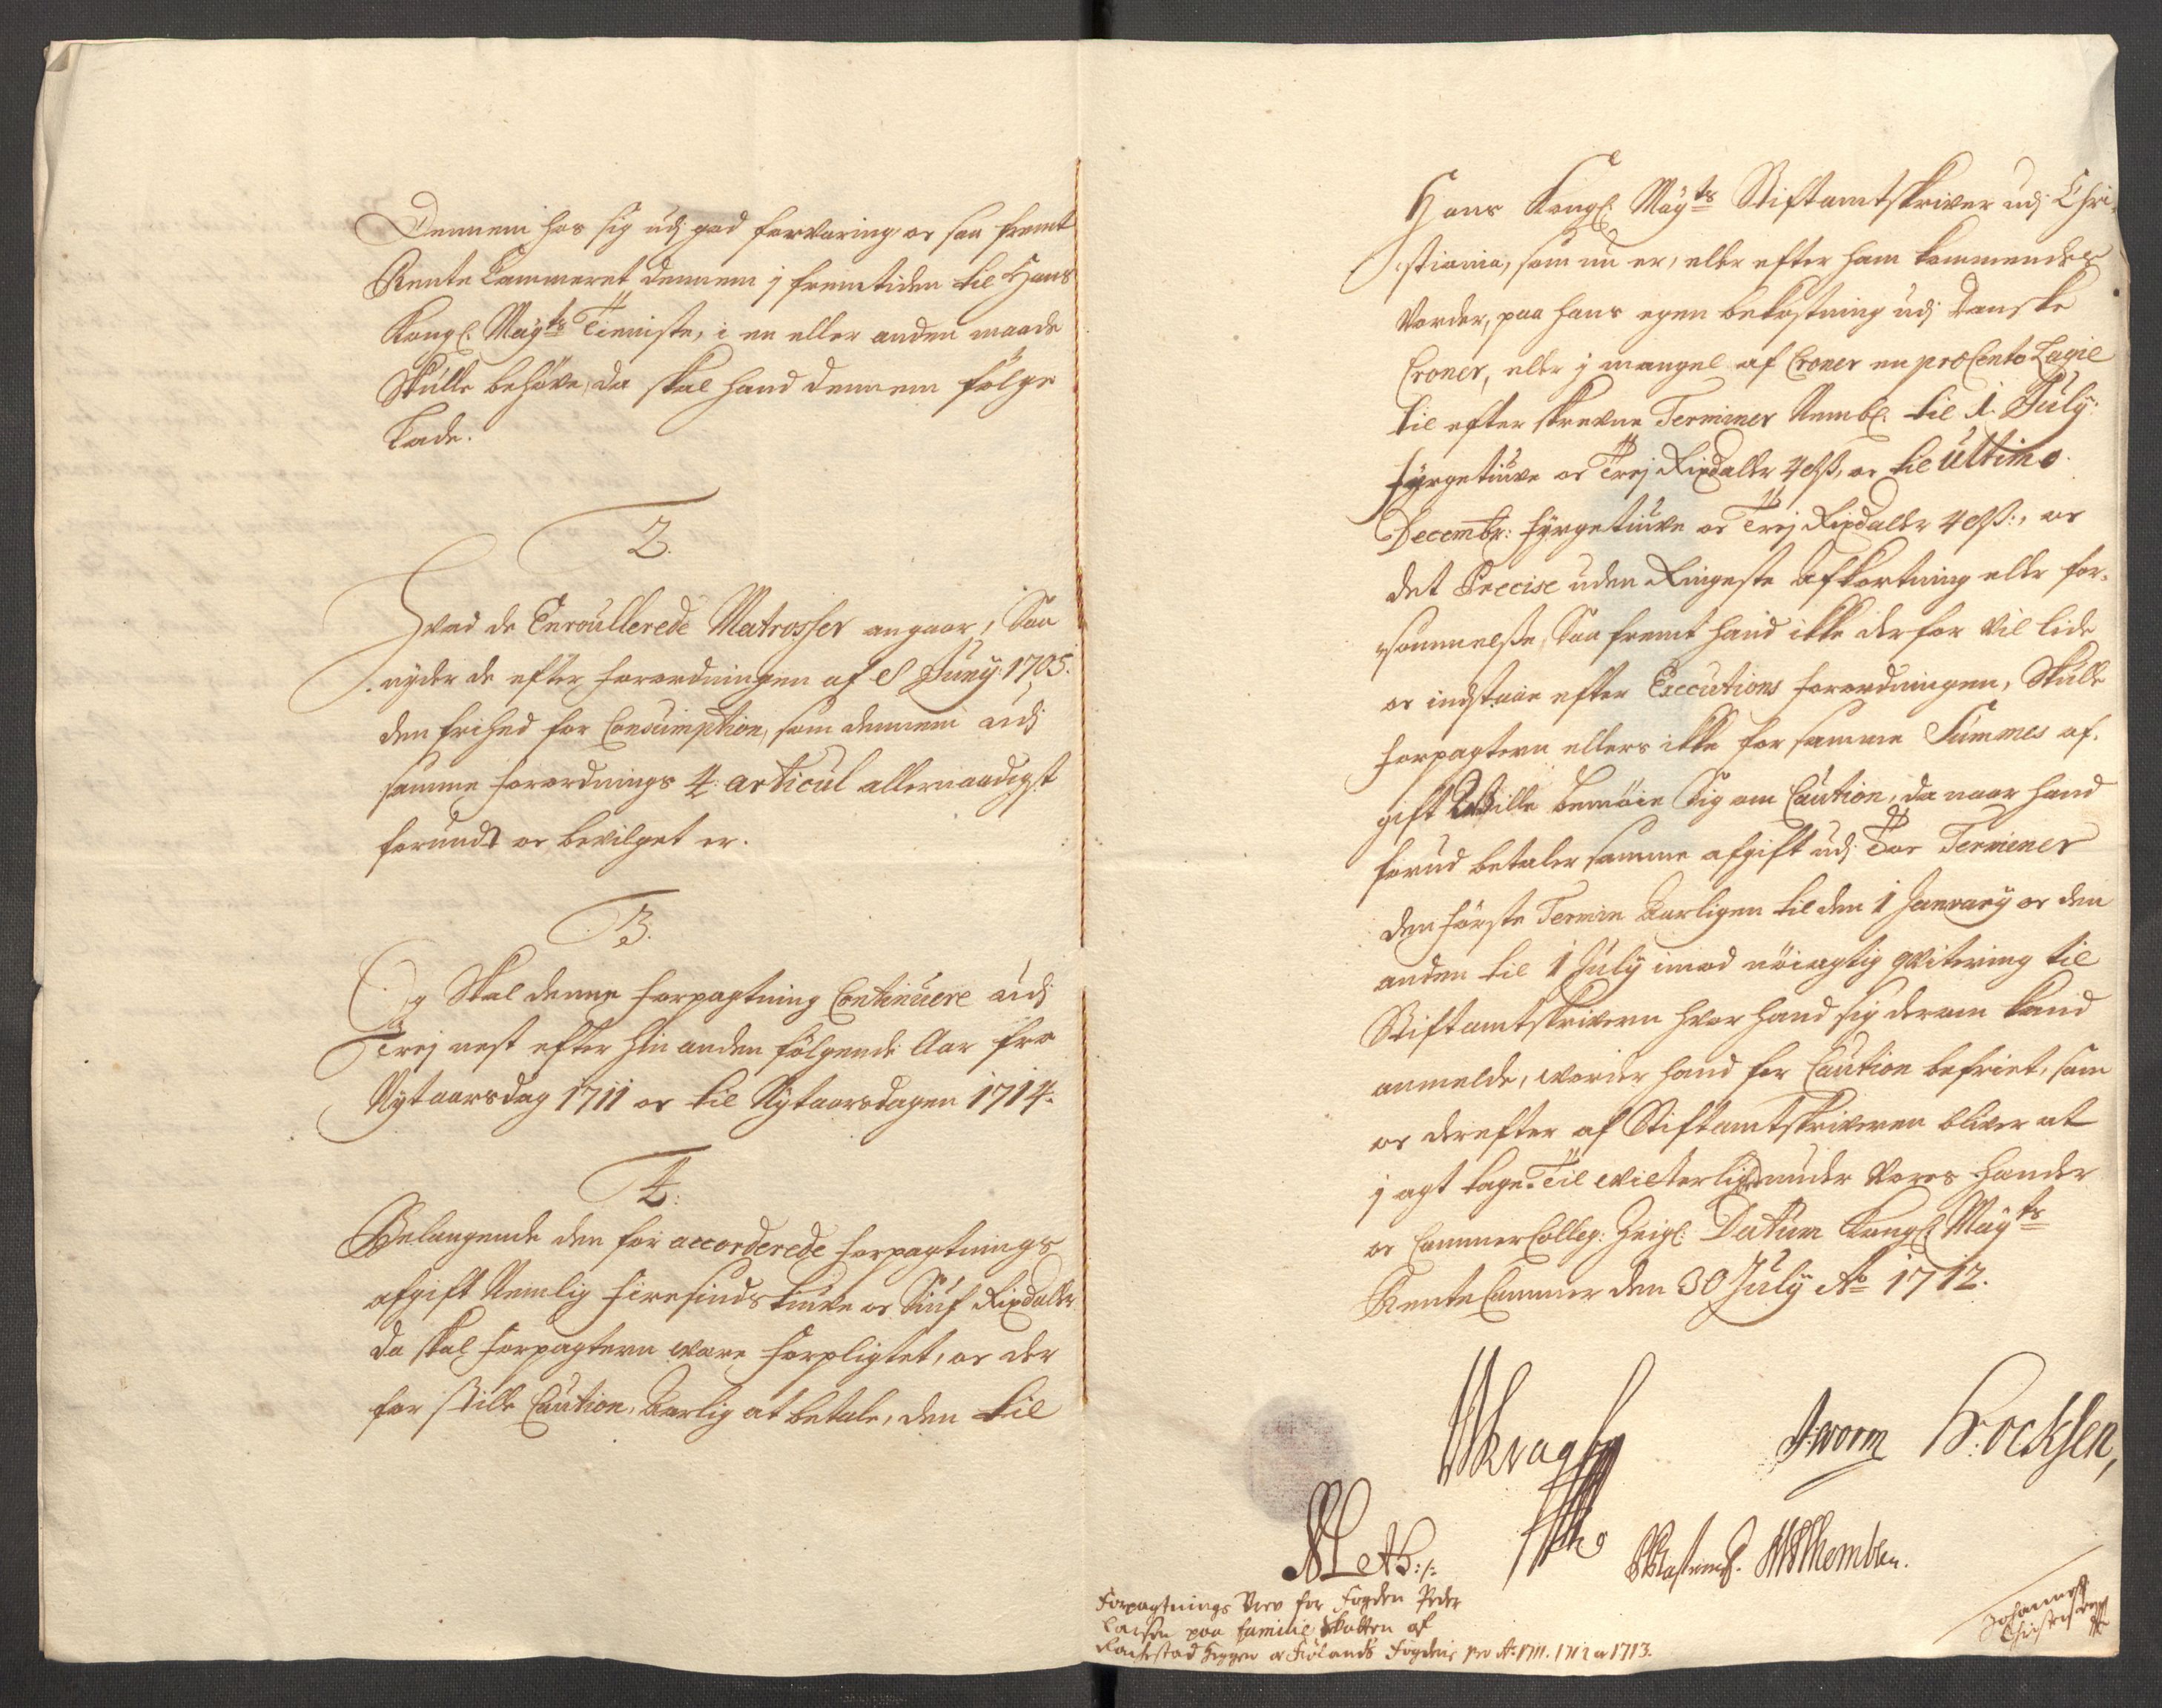 Dennem hos sig udj god forvaring og saa fremt
Rente Cammeret dennem j fremtiden til Hans
Kongl: Mayts Tienniste, i en eller anden maade
Skulle behöve, da skal hand dennem fölge
lade.
2.
Hvad de Enroullerede Matrosser angaar, Saa
nyder de efter forordningen af 8 Juny: 1705.
den frihed for Consumption, som dennem udj
samme forordnings 4: articul allernaadigst
forundt og bevilget er.
3.
Og Skal denne forpagtning Continuere udj
Trej nest efter hin anden fölgende Aar fra
Nytaarsdag 1711 og til Nytaarsdagen 1714.
4:
Belangende den for accorderede forpagtnings
afgift Nemlig firesinds tiuve og Siuf Rixdaller
da skal forpagteren være forpligtet, og der
for stille Caution, Aarlig at betale, den til
Hans Kongl: Mayts Stiftamtskriver udj Chri-
stiania, som nu er, eller efter ham kommender
Vorder, paa hans egen bekostning udj Danske
Croner, eller j mangel af Croner en pro Cento Lagie
til efterskrevne Terminer Neml: til 1. July:
fyrgetiuve og Trej Rixdaller 48 ß, og til ultimo
Decembr: fyrgetiuve og Trej Rixdaller 48 ß:, og
det Precise uden Ringeste afkortning eller for-
sömmelsse, Saa fremt hand ikke derfor vil lide
og indstaae efter Executions forordningen, Skulle
forpagteren ellers ikke for samme Summes af-
gift Wille bemöie Sig om Caution, da naar hand
forud betaler samme afgift udj Toe Terminer
den förste Termin Aarligen til den 1 January og den
anden til 1 July imod nöiagtig qvitering til
Stiftamtskriveren hvor hand sig derom kand
anmelde, worder hand for Caution befriet, som
og derefter af Stiftamtskriveren bliver at
j agt tage. Til witterlighed under Vores Hander
og Cammer Colleg: Zeigl: Datum Kongl: Mayts
Rente Cammer den 30 July Ao 1712.
Worm
Leth:/:
Forpagtnings Brev for Fogden Peder
Larsen paa familie Skatten af
Heggen og Frølands Fogderie pro Ao: 1711. 1712 og 1713.